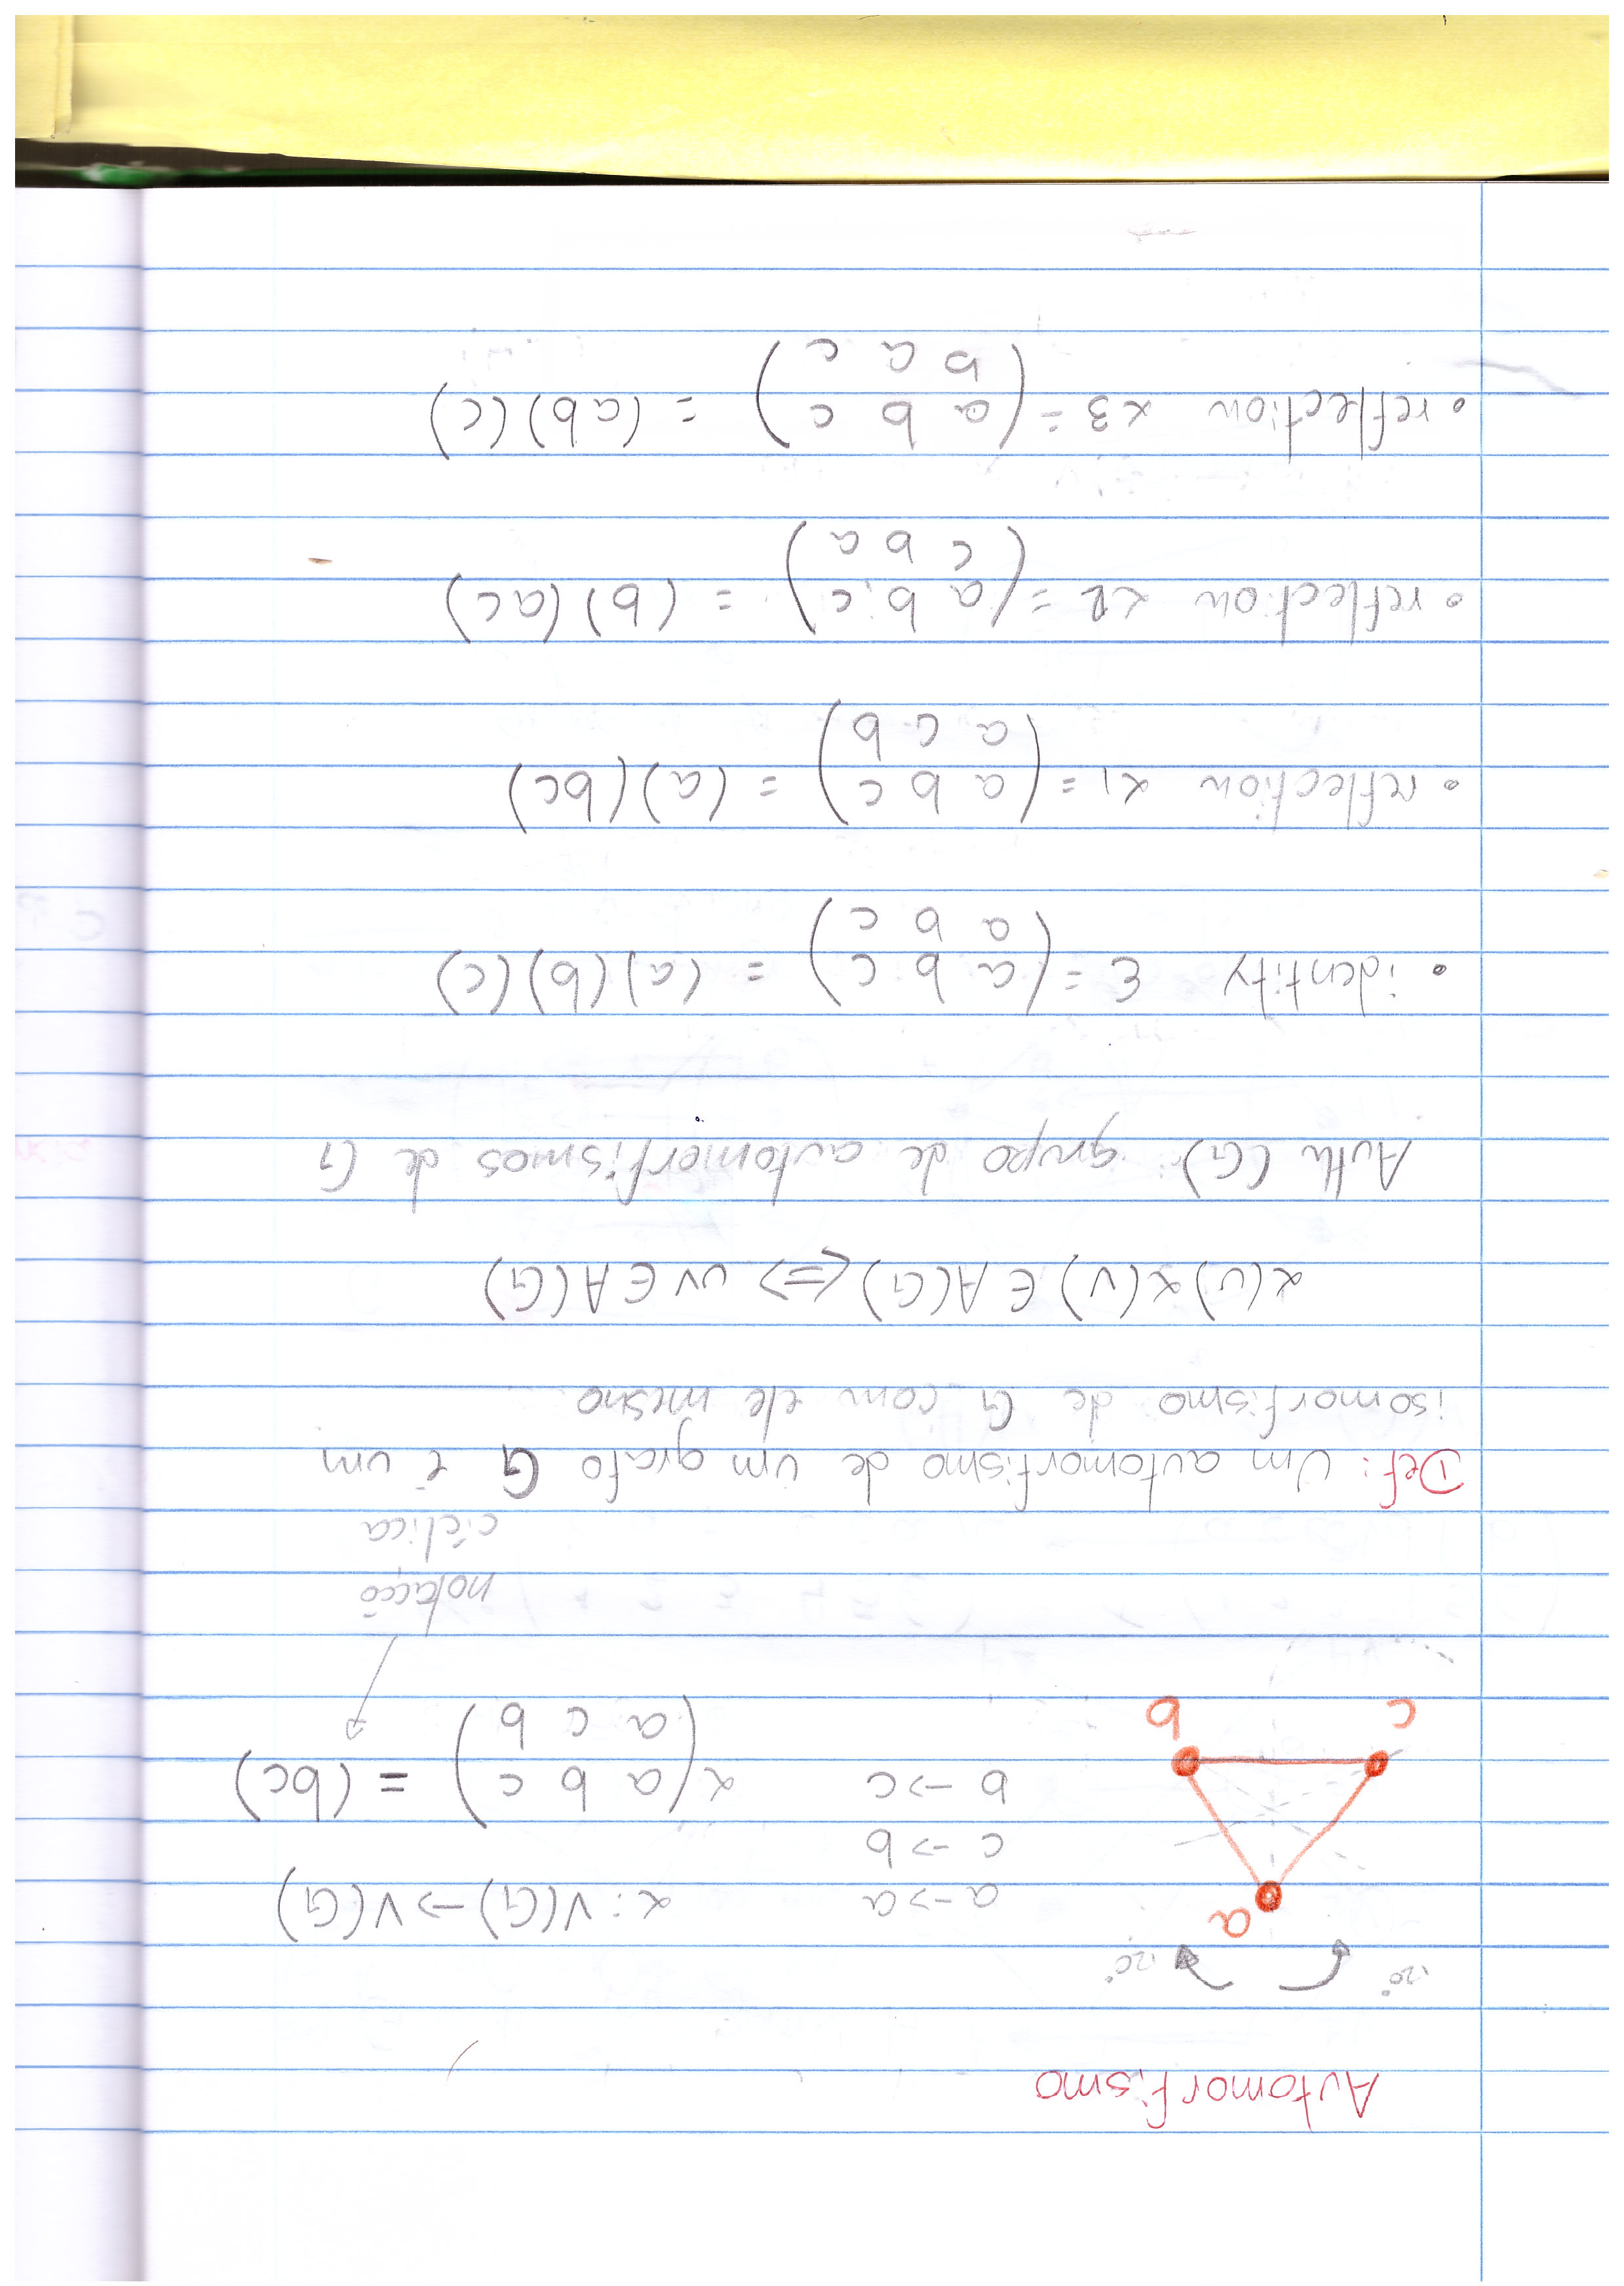 Automorfismo
120° 120°
a
c b
a -> a
c -> b
b -> c
α : V(G) -> V(G)
α(a b c) = (bc)
(a c b)
notação
cíclica
Def: Um automorfismo de um grafo G é um
isomorfismo de G com ele mesmo
α(u) α(v) ∈ A(G) <=> uv ∈ A(G)
Auth (G): grupo de automorfismos de G
• identity ε = (a b c) = (a)(b)(c)
(a b c)
• reflection α1 = (a b c) = (a)(bc)
(a c b)
• reflection α2 = (a b c) = (b)(ac)
(c b a)
• reflection α3 = (a b c) = (ab)(c)
(b a c)